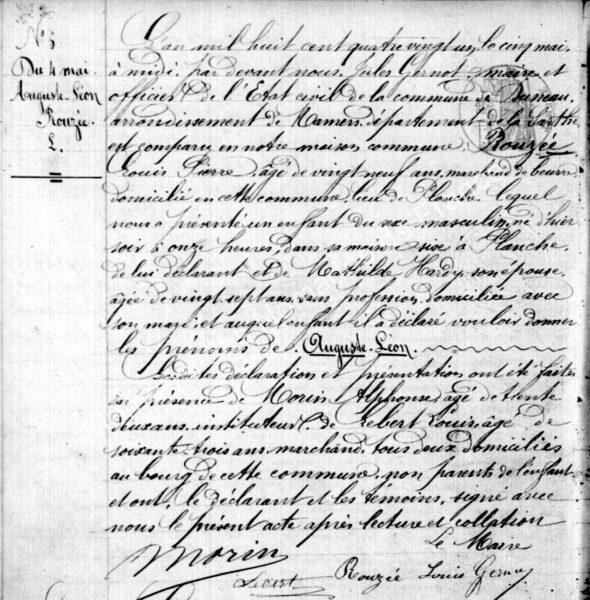 N° 5
Du 4 mai
Auguste Léon
Rouzée
L.
L'an mil huit cent quatre vingt un, le cinq mai,
à midi, par devant nous, Jules Gernot, maire et
officier de l'Etat civil de la commune de Duneau,
arrondissement de Mamers, département de la Sarthe
est comparu en notre maison commune, Rouzée
Louis Pierre, âgé de vingt neuf ans, marchand de beurre
domicilié en cette commune, lieu de Planche, lequel
nous a présenté un enfant du sexe masculin, né d'hier
soir à onze heures, dans sa maison sise à Planche,
de lui déclarant et de Mathilde Hardy son épouse,
âgée de vingt sept ans, sans profession, domiciliée avec
son mari, et auquel enfant il a déclaré vouloir donner
les prénoms de Auguste Léon.
Lesdites déclaration et présentation ont été faites
en présence de Morin Alphonse, âgé de trente
deux ans, instituteur & de Lebert Louis, âgé de
soixante trois ans, marchand, tous deux domiciliés
au bourg de cette commune, non parents de l'enfant
et ont, le déclarant et les témoins, signé avec
nous le présent acte après lecture et collation
Le Maire
Morin
Lebert Rouzée Louis Gernot